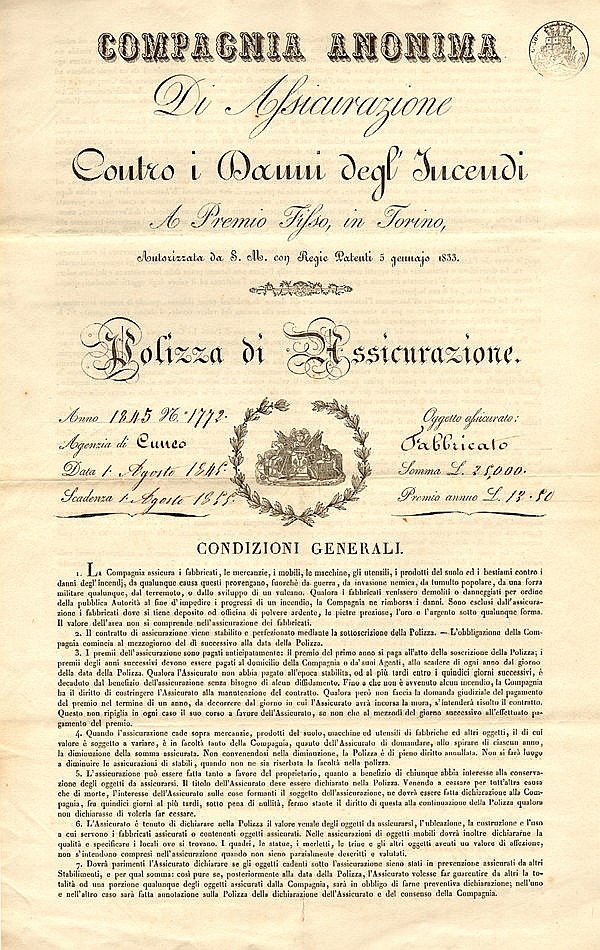 COMPAGNIA ANONIMA
Di Assicurazione
Contro i Danni degl' Incendi
A Premio Fisso, in Torino,
Autorizzata da S. M. con Regie Patenti 5 gennajo 1833.
Polizza di Assicurazione.
Anno 1845 N.º 1772.
Agenzia di Cuneo
Data 1. Agosto 1845.
Scadenza 1. Agosto 1855.
Oggetto assicurato:
Fabbricato
Somma L. 25,000.
Premio annuo L. 12.50
CONDIZIONI GENERALI.
1. La Compagnia assicura i fabbricati, le mercanzie, i mobili, le macchine, gli utensili, i prodotti del suolo ed i bestiami contro i
danni degl'incendj, da qualunque causa questi provengano, fuorchè da guerra, da invasione nemica, da tumulto popolare, da una forza
militare qualunque, dal terremoto, o dallo sviluppo di un vulcano. Qualora i fabbricati venissero demoliti o danneggiati per ordine
della pubblica Autorità al fine d'impedire i progressi di un incendio, la Compagnia ne rimborsa i danni. Sono esclusi dall'assicura-
zione i fabbricati dove si tiene deposito od officina di polvere ardente, le pietre preziose, l'oro e l'argento sotto qualunque forma.
Il valore dell'area non si comprende nell'assicurazione dei fabbricati.
2. Il contratto di assicurazione viene stabilito e perfezionato mediante la sottoscrizione della Polizza. — L'obbligazione della Com-
pagnia comincia al mezzogiorno del dì successivo alla data della Polizza.
3. I premii dell'assicurazione sono pagati anticipatamente: il premio del primo anno si paga all'atto della soscrizione della Polizza; i
premii degli anni successivi devono essere pagati al domicilio della Compagnia o da'suoi Agenti, allo scadere di ogni anno dal giorno
della data della Polizza. Qualora l'Assicurato non abbia pagato all'epoca stabilita, od al più tardi entro i quindici giorni successivi, è
decaduto dal beneficio dell'assicurazione senza bisogno di alcun diffidamento. Fino a che non è avvenuto alcun incendio, la Compagnia
ha il diritto di costringere l'Assicurato alla manutenzione del contratto. Qualora però non faccia la domanda giudiziale del pagamento
del premio nel termine di un anno, da decorrere dal giorno in cui l'Assicurato avrà incorsa la mora, s'intenderà risolto il contratto.
Questo non ripiglia in ogni caso il suo corso a favore dell'Assicurato, se non che al mezzodì del giorno successivo all'effettuato pa-
gamento del premio.
4. Quando l'assicurazione cade sopra mercanzie, prodotti del suolo, macchine ed utensili di fabbriche ed altri oggetti, il di cui
valore è soggetto a variare, è in facoltà tanto della Compagnia, quanto dell'Assicurato di domandare, allo spirare di ciascun anno,
la diminuzione della somma assicurata. Non convenendosi nella diminuzione, la Polizza è di pieno diritto annullata. Non si farà luogo
a diminuire le assicurazioni di stabili, quando non ne sia riserbata la facoltà nella polizza.
5. L'assicurazione può essere fatta tanto a favore del proprietario, quanto a benefizio di chiunque abbia interesse alla conserva-
zione degli oggetti da assicurarsi. Il titolo dell'Assicurato deve essere dichiarato nella Polizza. Venendo a cessare per tutt'altra causa
che di morte, l'interesse dell'Assicurato sulle cose formanti il soggetto dell'assicurazione, ne dovrà essere fatta dichiarazione alla Com-
pagnia, fra quindici giorni al più tardi, sotto pena di nullità, fermo stante il diritto di questa alla continuazione della Polizza qualora
non dichiarasse di volerla far cessare.
6. L'Assicurato è tenuto di dichiarare nella Polizza il valore venale degli oggetti da assicurarsi, l'ubicazione, la costruzione e l'uso
a cui servono i fabbricati assicurati o contenenti oggetti assicurati. Nelle assicurazioni di oggetti mobili dovrà inoltre dichiararne la
qualità e specificare i locali ove si trovano. I quadri, le statue, i merletti, le trine e gli altri oggetti aventi un valore di affezione,
non s'intendono compresi nell'assicurazione quando non sieno parzialmente descritti e valutati.
7. Dovrà parimenti l'Assicurato dichiarare se gli oggetti cadenti sotto l'assicurazione sieno stati in prevenzione assicurati da altri
Stabilimenti, e per qual somma: così pure se, posteriormente alla data della Polizza, l'Assicurato volesse far guarentire da altri la to-
talità od una porzione qualunque degli oggetti assicurati dalla Compagnia, sarà in obbligo di farne preventiva dichiarazione; nell'uno
e nell'altro caso sarà fatta annotazione sulla Polizza della dichiarazione dell'Assicurato e del consenso della Compagnia.